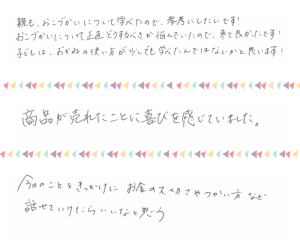 親も、おこづかいについて学べたので、参考にしたいです!
おこづかいについて正直どうするべきか悩んでいたので、来て良かったです!
子どもは、おかねの使い方が少しでも学べたんではないかと思います!
商品が売れたことに喜びを感じていました。
今日のことをきっかけに お金の大切さやつかい方など
話せていけたらいいなと思う